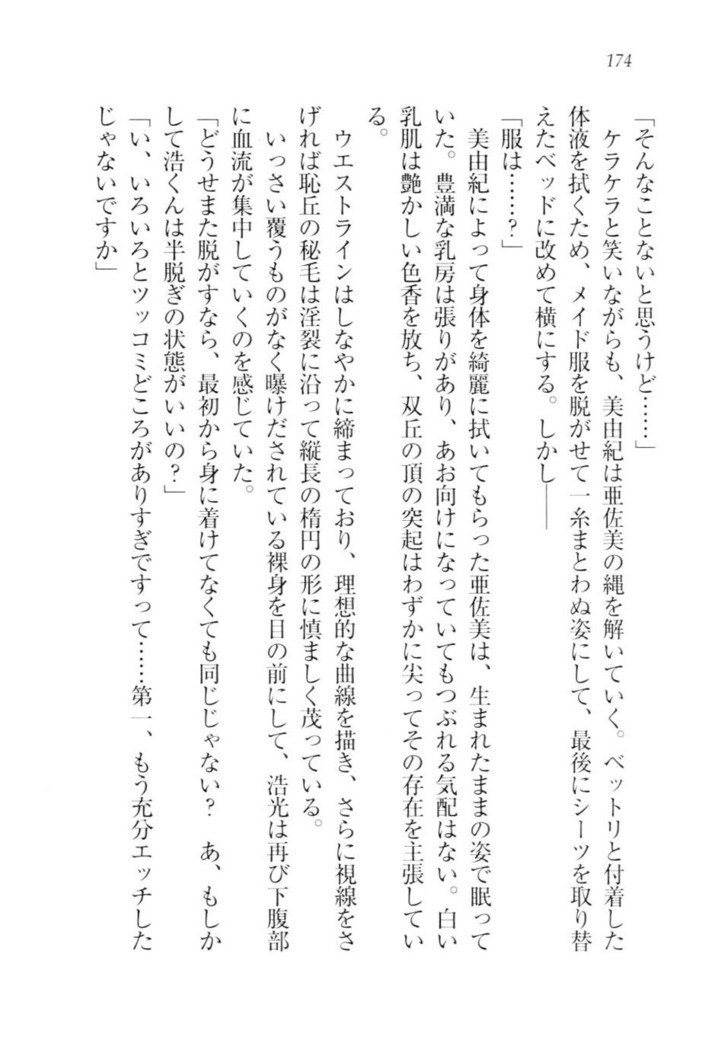 174
「そんなことないと思うけど……」
ケラケラと笑いながらも、美由紀は亜佐美の縄を解いていく。ベットリと付着した
体液を拭くため、メイド服を脱がせて一糸まとわぬ姿にして、最後にシーツを取り替
えたベッドに改めて横にする。しかし――
「服は……？」
美由紀によって身体を綺麗に拭いてもらった亜佐美は、生まれたままの姿で眠って
いた。豊満な乳房は張りがあり、あお向けになっていてもつぶれる気配はない。白い
乳肌は艶かしい色香を放ち、双丘の頂の突起はわずかに尖ってその存在を主張してい
る。
ウエストラインはしなやかに締まっており、理想的な曲線を描き、さらに視線をさ
げれば恥丘の秘毛は淫裂に沿って縦長の楕円の形に慎ましく茂っている。
いっさい覆うものがなく曝けだされている裸身を目の前にして、浩光は再び下腹部
に血流が集中していくのを感じていた。
「どうせまた脱がすなら、最初から身に着けてなくても同じじゃない？　あ、もしか
して浩くんは半脱ぎの状態がいいの？」
「い、いろいろとツッコミどころがありすぎですって……第一、もう充分エッチした
じゃないですか」